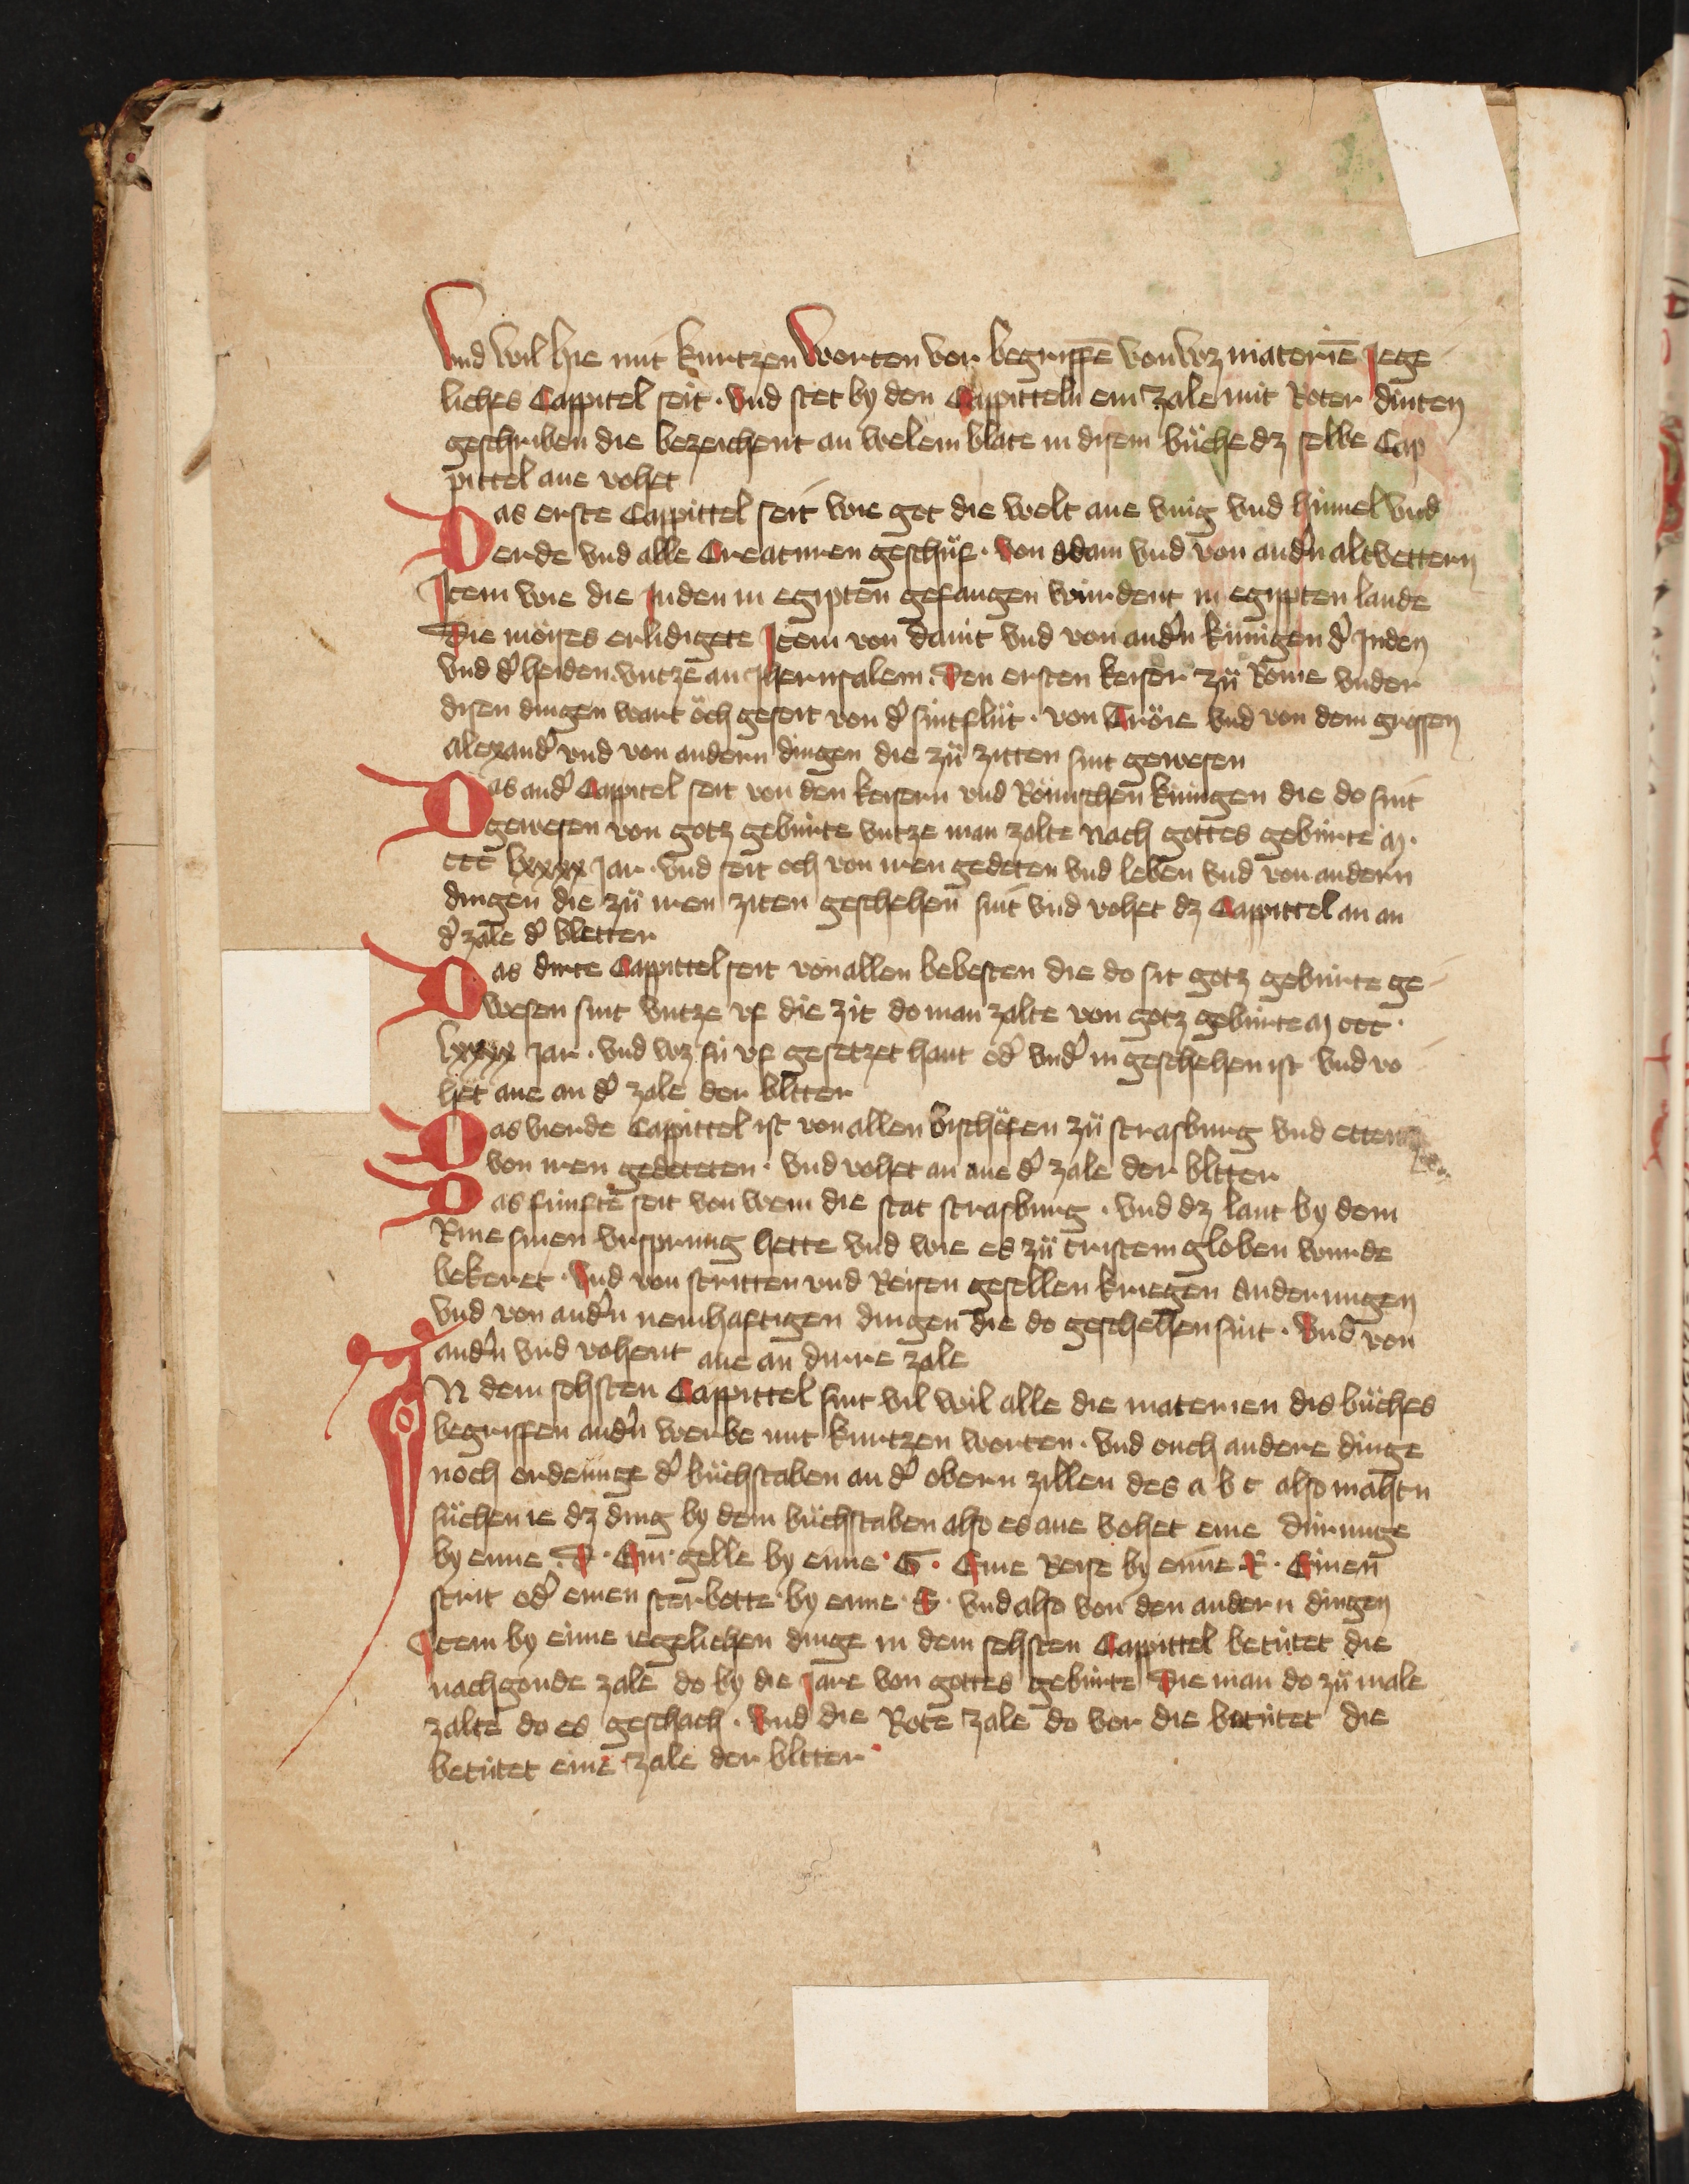 Vnd wil hie mit kurtzen worten vor begriffē von wz materiē Jege
liches Cappitel seit · vnd stet by den Cappitteln ein zale mit Roter dinten
geschriben die bezeichent an welem blate in disem bůche dz selbe Cap
pittel ane vohet
Das erste Cappittel seit wie got die welt ane vnig vnd himel vnd
erde vnd alle Creaturen geschůf · von adam vnd von and'n altvettern
Item wie die Juden in egipten gefangen wurdent in egipten lande
Die moises erlidigete Item von dauit vnd von and'n kúnigen d' Juden
vnd d' heiden vntze an Jherusalem · den ersten keiser zů Rome vnder
disen dingen wart öch geseit von d' sintflůt · von Tröie vnd von dem grossen
alexand' vnd von andern dingen die zů zitten sint gewesen
Das and' Cappitel seit von den keisern vnd Römischen kúnigen die do sint
gewesen von gotz gebúrte vntze man zalte nach gottes gebúrte m ·
ccc lxxxx Jar · vnd seit och von iren gedeten vnd leben vnd von andern
dingen die zů iren ziten geschehen sint vnd vohet dz Cappittel an an
d' zale d' bletter
Das dirte Cappittel seit von allen bebesten die do sit gotz gebúrte ge
wesen sint vntze vf die zit do man zalte von gotz gebúrte m ccc ·
lxxxx Jar · vnd wz sú vf gesetzet hant od' vnd' in geschehen ist vnd vo
het ane an d' zale der bltter
Das vierde Cappittel ist von allen bischöfen zů strasburg vnd etten
von iren gedeteten · vnd vohet an ane d' zale der bltter
Das fúnfte seit von wem die stat strasburg · vnd dz lant by dem
Rine sinen vrsprung hette vnd wie es zů cristem globen wurde
bekeret · vnd von stritten vnd Reisen gesellen kriegen anderungen
vnd von and'n nemhaftigen dingen die do geschehen sint · vnd von
and'n vnd vohent ane an dirre zale
IN dem sehsten Cappittel sint vil wil alle die materien dis bůches
begriffen and'n werbe mit kurtzen worten · vnd ouch andere dinge
noch ordenunge d' bůchstaben an d' obern zillen des a b c also mahtu
sůchen ie dz ding by dem bůchstaben also es ane vohet eine dúrunge
by eime · D · Ein gelle by eime · G · Eine Reise by eime R · Einen
strit od' einen sterbotte by eime · S · vnd also von den andern dingen
Item by eime iegelichen dinge in dem sehsten Cappittel betútet die
nachgonde zale do by die Jare von gottes gebúrte die man do zů male
zalte do es geschach · vnd die Rote zale do vor die betútet die
betútet eine zale der bltter